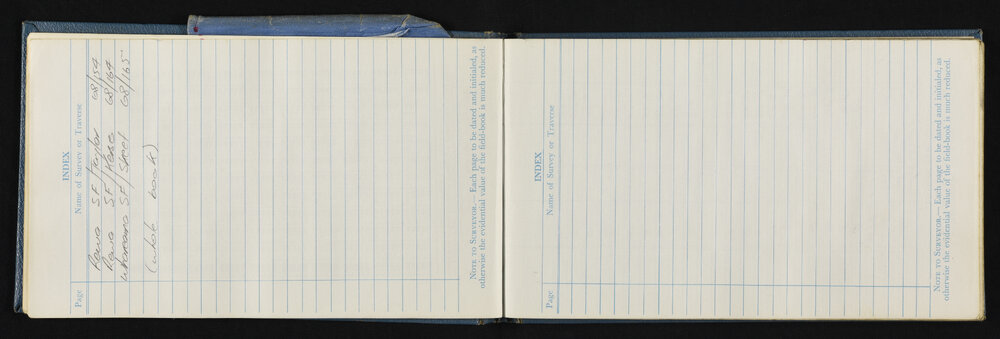 INDEX
Page Name of Survey or Traverse
Rawa SF / Taylor 68/154
Rawa SF / Kease 68/164
SF / Speel 68/165
(whole book)
NOTE TO SURVEYOR.— Each page to be dated and initialed, as
otherwise the evidential value of the field-book is much reduced.
INDEX
Page Name of Survey or Traverse
NOTE TO SURVEYOR.— Each page to be dated and initialed, as
otherwise the evidential value of the field-book is much reduced.